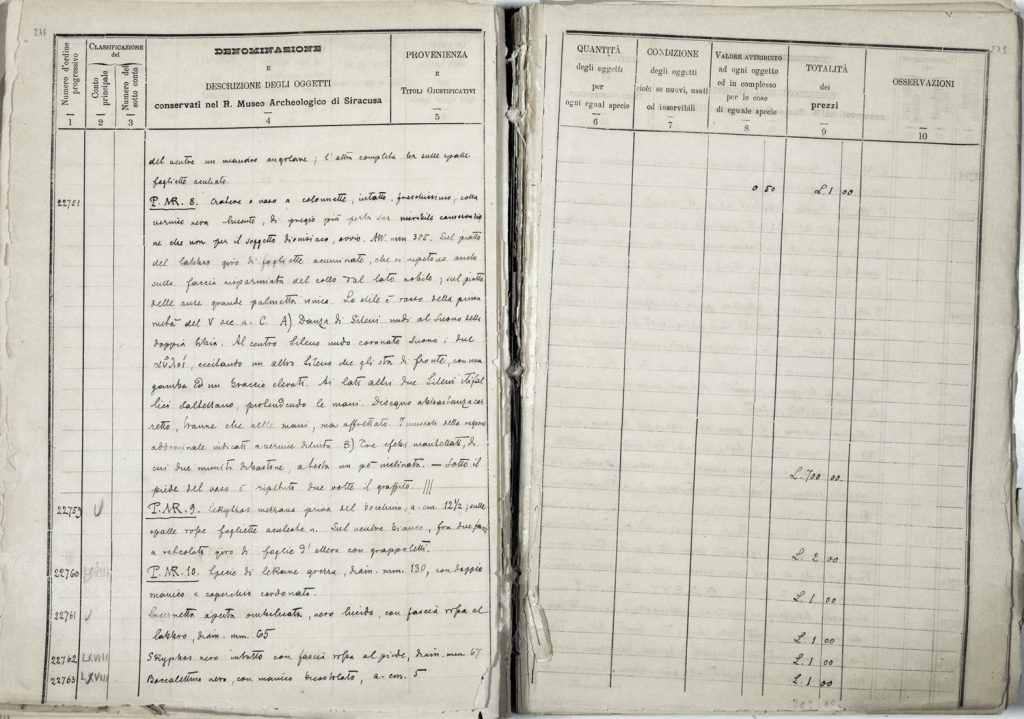 278
Numero d'ordine progressivo
Classificazione del
Conto principale
Numero del sotto conto
DENOMINAZIONE
E
DESCRIZIONE DEGLI OGGETTI
conservati nel R. Museo Archeologico di Siracusa
PROVENIENZA
E
Titoli Giustificativi
1 2 3 4 5
del ventre un meandro angolare; l'altra completa ha sulle spalle
fogliette aculeate.
22751 P. NR. 8. Cratere o vaso a colonnette, intatto, freschissimo, colla
vernice nera lucente, di pregio più per la sua mirabile conservazio
ne che non per il soggetto dionisiaco, ovvio. Alt. mm 385. Sul piatto
del labbro giro di fogliette acuminate, che si ripetono anche
sulla fascia risparmiata del collo dal lato nobile; sul piatto
delle anse grande palmetta ionica. Lo stile è rosso della prima
metà del V sec. a. C. A) Danza di Sileni nudi al suono della
doppia tibia. Al centro Sileno nudo coronato suona i due
αὐλοί, eccitando un altro Sileno che gli sta di fronte, con una
gamba ed un braccio elevati. Ai lati altri due Sileni itifal
lici saltellano, protendendo le mani. Disegno abbastanza cor
retto, tranne che nelle mani, ma affrettato. I muscoli della regione
addominale indicati a vernice diluita. B) Tre efebi mantellati, di
cui due muniti di bastone, a testa un pò inclinata. — Sotto il
piede del vaso è ripetuto due volte il graffito |||
22759 P. NR. 9. Lekythos mezzana priva del bocchino, a. cm. 12 1/2; sulle
spalle rosse fogliette aculeate n. Sul ventre bianco, fra due fasce
a reticolato giro di foglie d'ellera con grappoletti.
22760 P. NR. 10. Specie di lekane grezza, diam. mm. 130, con doppio
manico e coperchio cordonato.
22761 Lucernetta aperta ombelicata, nero lucida, con fascia rossa al
labbro, diam. mm. 65
22762 LXVIII Skyphos nero intatto con fascia rossa al piede, diam. mm 67
22763 LXVIII Boccalettino nero, con manico bicostolato, a. cm. 5
QUANTITÀ
degli oggetti
per
ogni egual specie
CONDIZIONE
degli oggetti
cioè: se nuovi, usati
od inservibili
Valore attribuito
ad ogni oggetto
od in complesso
per le cose
di eguale specie
TOTALITÀ
dei
prezzi
OSSERVAZIONI
6 7 8 9 10
0 50 L. 1 00
L. 700 00.
L. 2 00
L. 1 00
L. 1 00
L. 1 00
L. 1 00